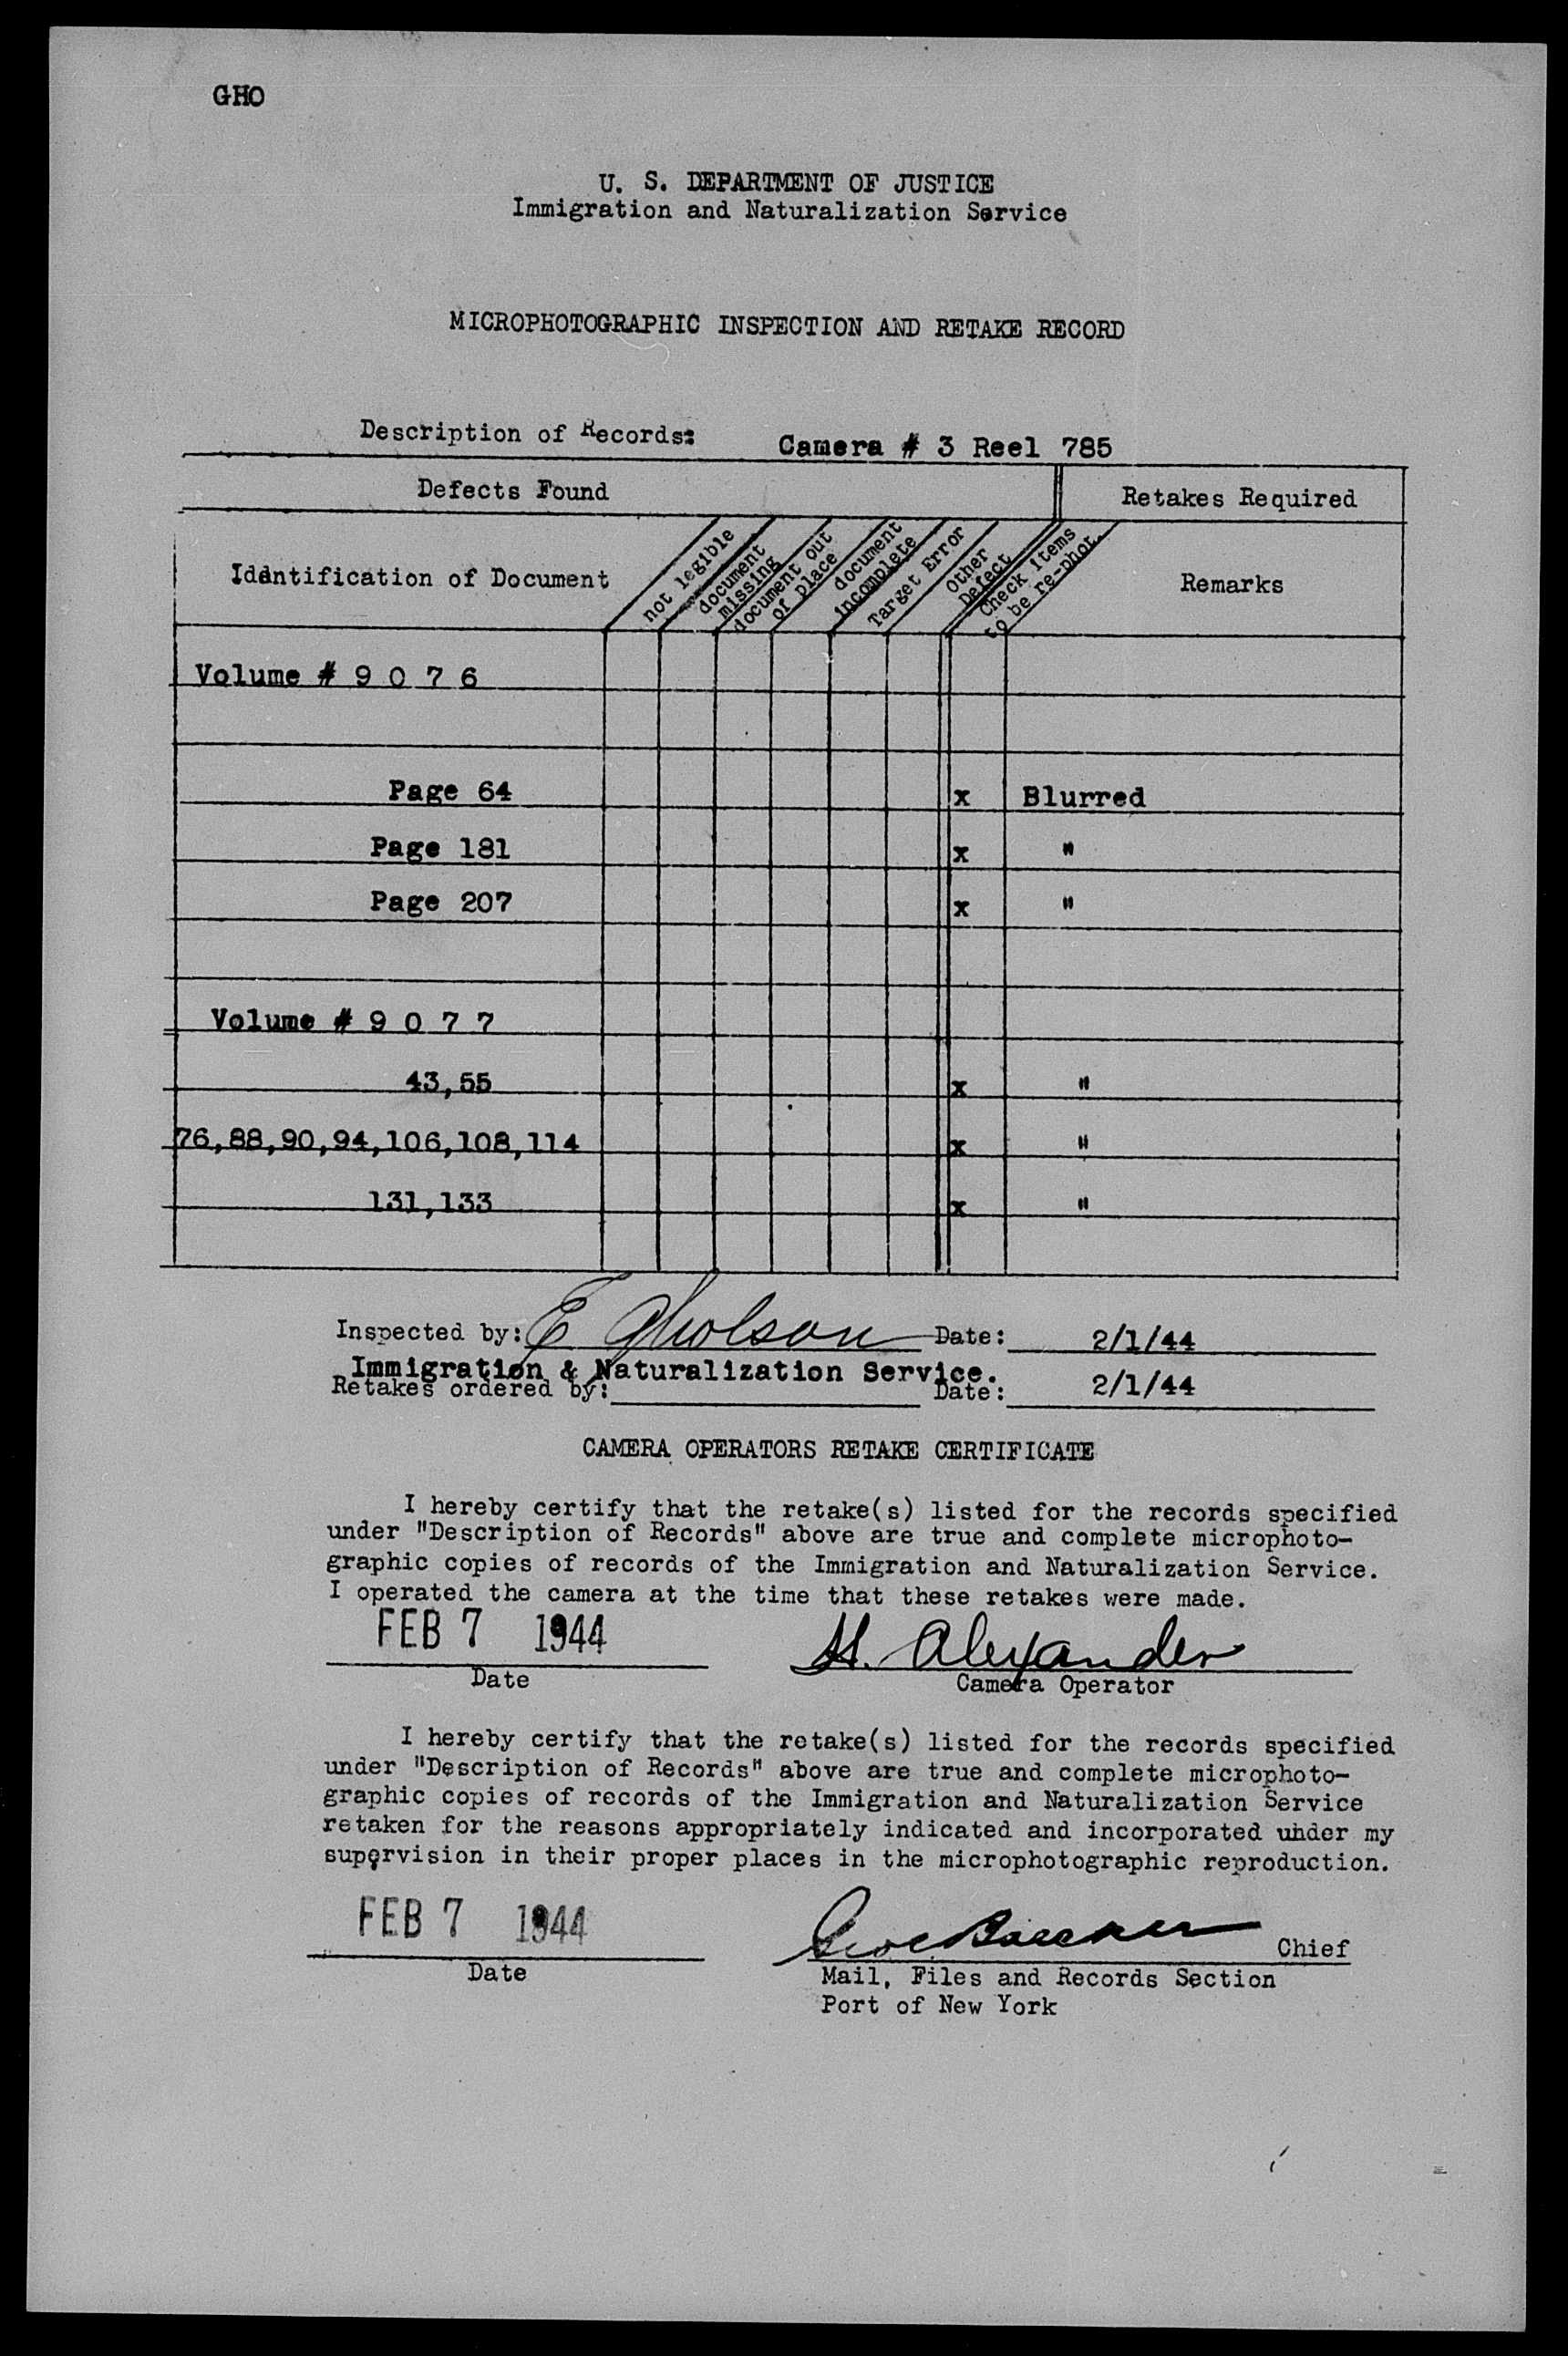 GHO
U. S. DEPARTMENT OF JUSTICE
Immigration and Naturalization Service
MICROPHOTOGRAPHIC INSPECTION AND RETAKE RECORD
Description of Records: Camera # 3 Reel 785
Defects Found Retakes Required
Identification of Document not legible document missing document out of place document incomplete Target Error Other Defect Check items to be re-phot. Remarks
Volume # 9 0 7 6
Page 64 x Blurred
Page 181 x "
Page 207 x "
Volume # 9 0 7 7
43,55 x "
76,88,90,94,106,108,114 x "
131,133 x "
Inspected by: E Gholson Date: 2/1/44
Immigration & Naturalization Service.
Retakes ordered by: Date: 2/1/44
CAMERA OPERATORS RETAKE CERTIFICATE
I hereby certify that the retake(s) listed for the records specified
under "Description of Records" above are true and complete microphoto-
graphic copies of records of the Immigration and Naturalization Service.
I operated the camera at the time that these retakes were made.
FEB 7 1944 H. Alexander
Date Camera Operator
I hereby certify that the retake(s) listed for the records specified
under "Description of Records" above are true and complete microphoto-
graphic copies of records of the Immigration and Naturalization Service
retaken for the reasons appropriately indicated and incorporated under my
supervision in their proper places in the microphotographic reproduction.
FEB 7 1944 Chief
Date Mail, Files and Records Section
Port of New York